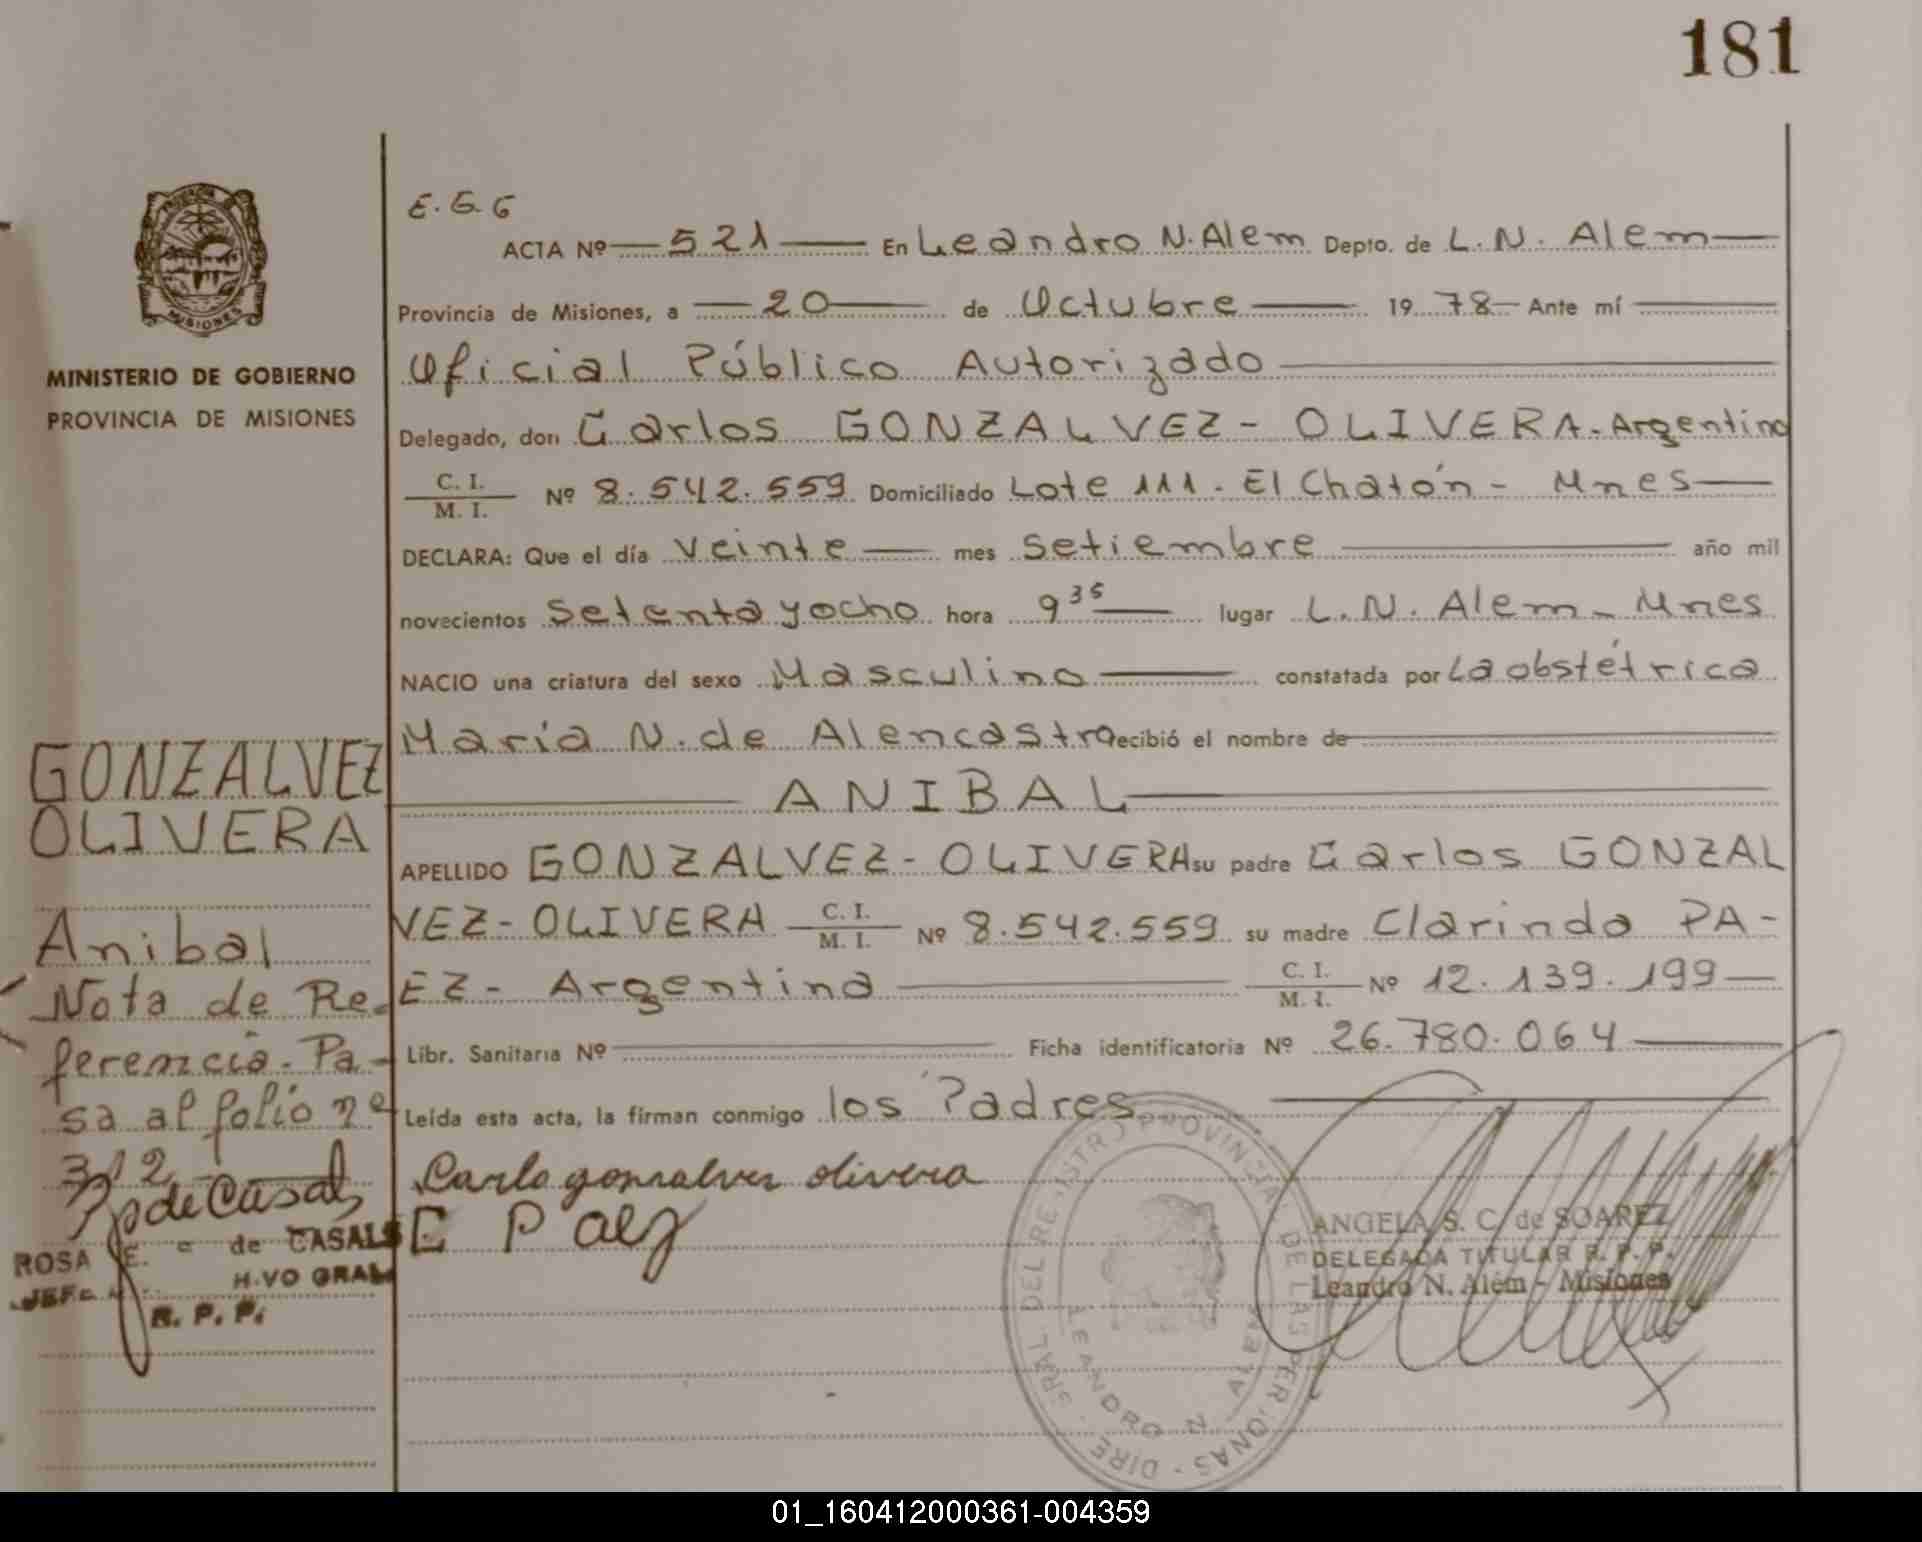 181
PROVINCIA
MISIONES
MINISTERIO DE GOBIERNO
PROVINCIA DE MISIONES
E.G.G
ACTA Nº 521 En Leandro N. Alem Depto. de L. N. Alem
Provincia de Misiones, a 20 de Octubre 19 78 Ante mí
Oficial Público Autorizado
Delegado, don Carlos GONZALVEZ - OLIVERA - Argentino
C. I.
M. I. Nº 8.542.559 Domiciliado Lote 111 - El Chatón - Mnes
DECLARA: Que el día veinte mes setiembre año mil
novecientos setenta y ocho hora 9 35 lugar L. N. Alem - Mnes
NACIO una criatura del sexo Masculino constatada por La obstétrica
María N. de Alencastro recibió el nombre de
ANIBAL
APELLIDO GONZALVEZ - OLIVERA su padre Carlos GONZAL
VEZ - OLIVERA C. I.
M. I. Nº 8.542.559 su madre Clarinda PA-
EZ - Argentina C. I.
M. I. Nº 12.139.199
Libr. Sanitaria Nº Ficha identificatoria Nº 26.780.064
Leída esta acta, la firman conmigo los Padres
Carlo gonsalvez olivera
C Paez
GONZALVEZ
OLIVERA
Anibal
Nota de Re-
ferencia. Pa-
sa al folio nº
312
de Casals
ROSA E. de CASALS
JEFE H.VO GRAL
R. P. P.
ANGELA S. C. de SOAREZ
DELEGADA TITULAR R. P. P.
Leandro N. Além - Misiones
DIRE GRAL. DEL REGISTRO PROVINCIAL DE LAS PERSONAS
LEANDRO N. ALEM
01_160412000361-004359